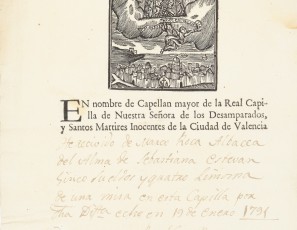 EN nombre de Capellan mayor de la Real Capi-
lla de Nuestra Señora de los Desamparados,
y Santos Martires Inocentes de la Ciudad de Valencia
He recivido de
del Alma de Sebastiana Estevan
Sinco sueldos y quatro
de una misa en esta Capilla por
en 19 de Enero 1791